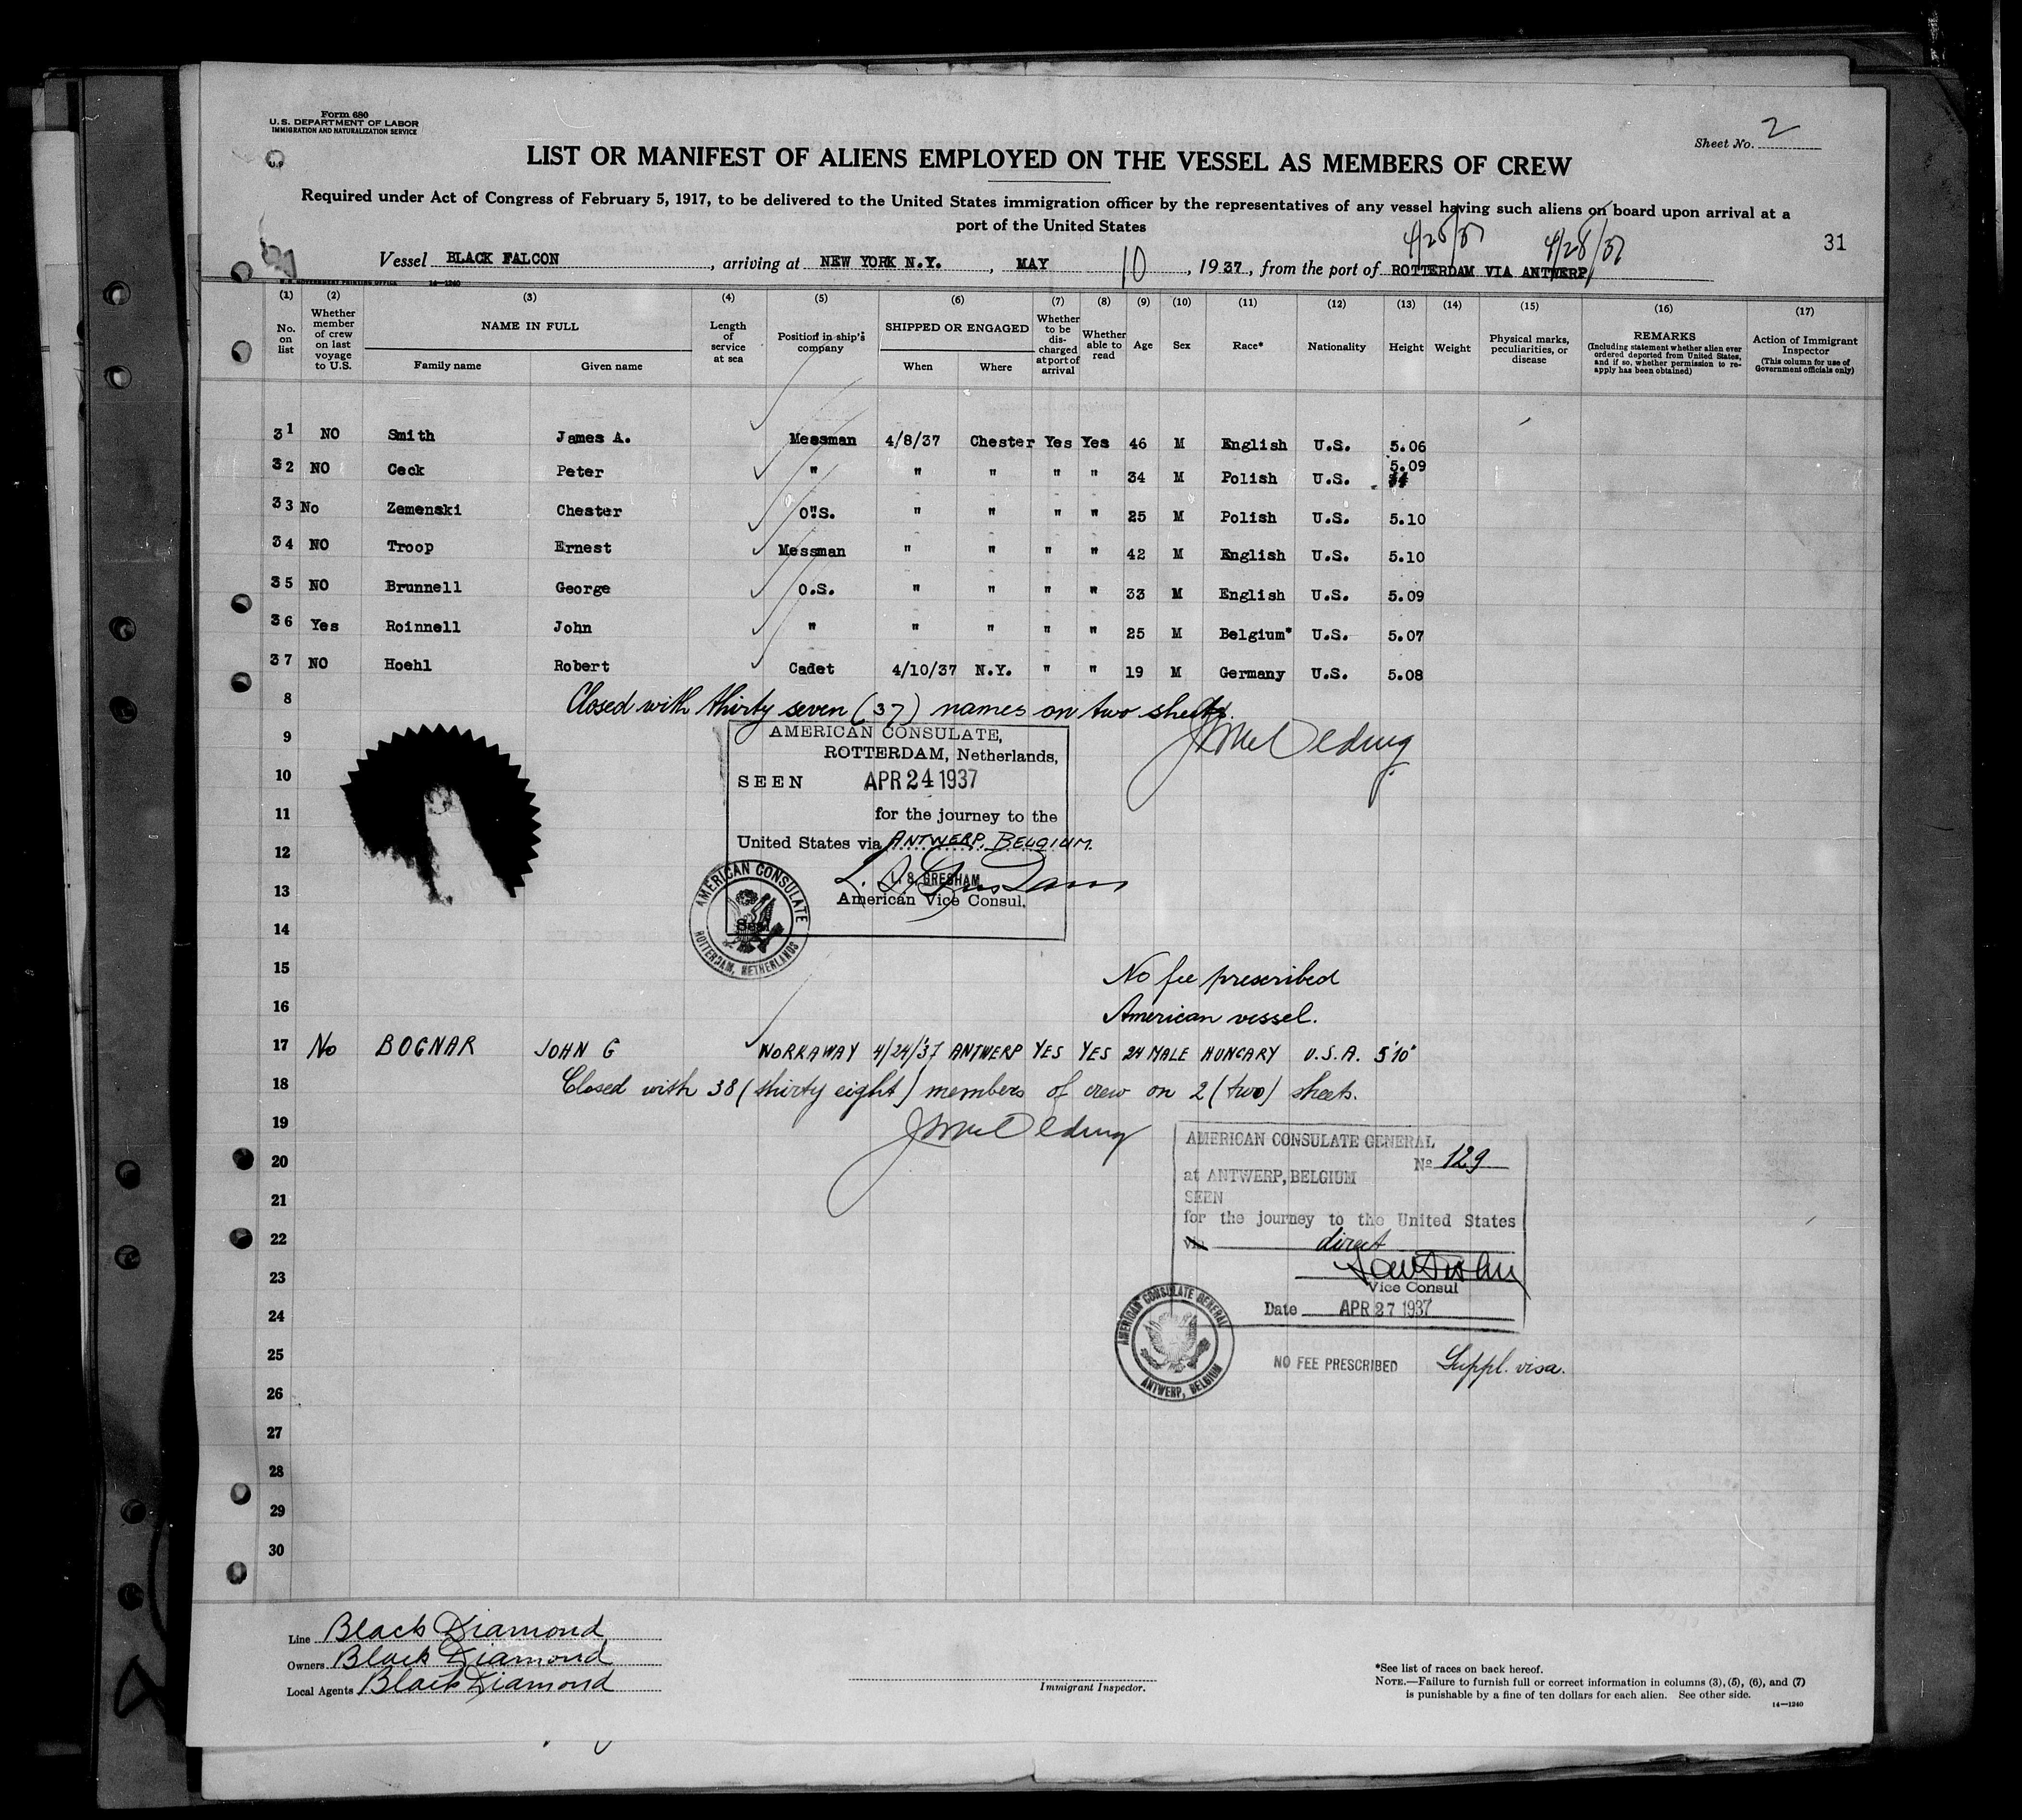 Form 680
U. S. DEPARTMENT OF LABOR
IMMIGRATION AND NATURALIZATION SERVICE
Sheet No. 2
LIST OR MANIFEST OF ALIENS EMPLOYED ON THE VESSEL AS MEMBERS OF CREW
Required under Act of Congress of February 5, 1917, to be delivered to the United States immigration officer by the representatives of any vessel having such aliens on board upon arrival at a
port of the United States
4/28/37 4/28/37
31
Vessel BLACK FALCON, arriving at NEW YORK N.Y., MAY 10, 1937, from the port of ROTTERDAM VIA ANTWERP
U. S. GOVERNMENT PRINTING OFFICE 14—1240
(1) (2) (3) (4) (5) (6) (7) (8) (9) (10) (11) (12) (13) (14) (15) (16) (17)
No. on list
Whether member of crew on last voyage to U.S.
NAME IN FULL
Family name
Given name
Length of service at sea
Position in ship's company
SHIPPED OR ENGAGED
When
Where
Whether to be discharged at port of arrival
Whether able to read
Age
Sex
Race*
Nationality
Height
Weight
Physical marks, peculiarities, or disease
REMARKS
(Including statement whether alien ever ordered deported from United States, and if so, whether permission to re-apply has been obtained)
Action of Immigrant Inspector
(This column for use of Government officials only)
31 NO Smith James A. Messman 4/8/37 Chester Yes Yes 46 M English U.S. 5.06
32 NO Ceck Peter " " " " " 34 M Polish U.S. 5.09
33 No Zemenski Chester O.S. " " " " 25 M Polish U.S. 5.10
34 NO Troop Ernest Messman " " " " 42 M English U.S. 5.10
35 NO Brunnell George O.S. " " " " 33 M English U.S. 5.09
36 Yes Roinnell John " " " " " 25 M Belgium* U.S. 5.07
37 NO Hoehl Robert Cadet 4/10/37 N.Y. " " 19 M Germany U.S. 5.08
8 Closed with thirty seven (37) names on two sheets.
9
10
11
12
13
14
15
16
AMERICAN CONSULATE,
ROTTERDAM, Netherlands,
SEEN APR 24 1937
for the journey to the
United States via ANTWERP, BELGIUM.
L. S. GRESHAM
American Vice Consul.
Seal
AMERICAN CONSULATE
ROTTERDAM, NETHERLANDS
No fee prescribed
American vessel.
17 No BOGNAR JOHN G WORKAWAY 4/24/37 ANTWERP YES YES 24 MALE HUNGARY U.S.A. 5'10"
18 Closed with 38 (thirty eight) members of crew on 2 (two) sheets.
19
20
21
22
23
24
25
26
27
28
29
30
AMERICAN CONSULATE GENERAL
No 129
at ANTWERP, BELGIUM
SEEN
for the journey to the United States
via direct
Vice Consul
Date APR 27 1937
AMERICAN CONSULATE GENERAL
ANTWERP, BELGIUM
NO FEE PRESCRIBED Suppl. visa.
Line Black Diamond
Owners Black Diamond
Local Agents Black Diamond
Immigrant Inspector.
*See list of races on back hereof.
NOTE.—Failure to furnish full or correct information in columns (3), (5), (6), and (7)
is punishable by a fine of ten dollars for each alien. See other side.
14—1240